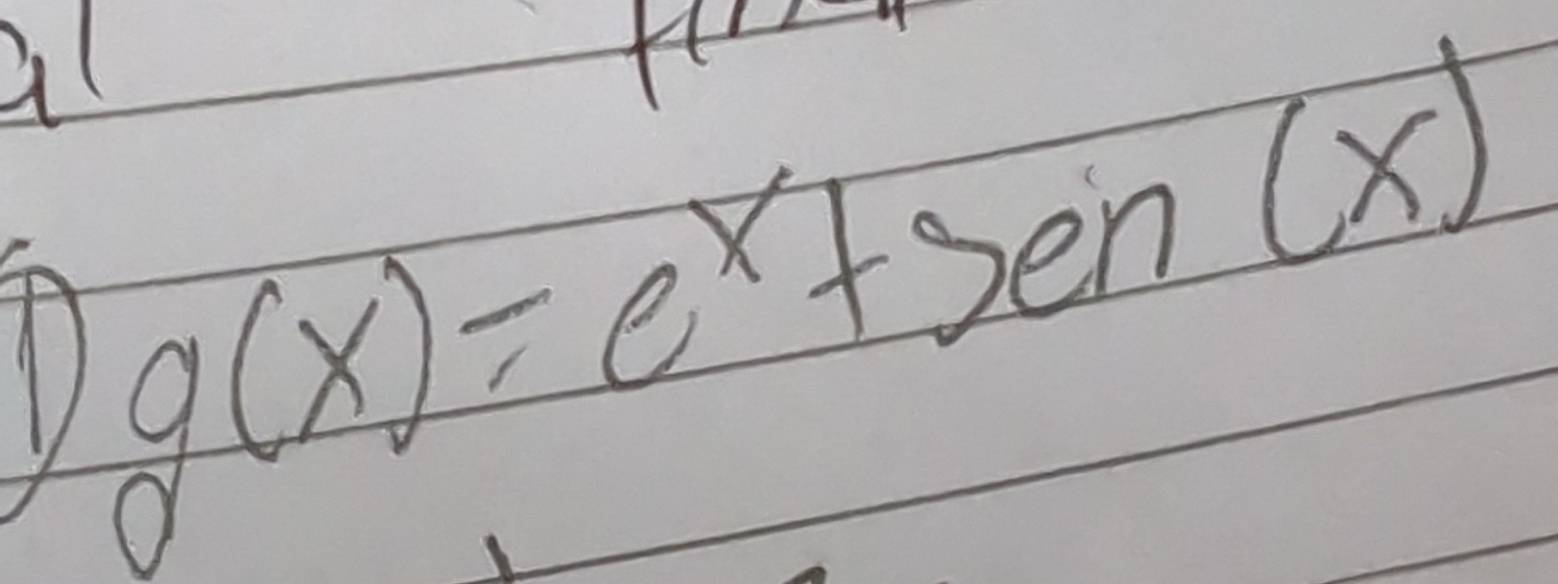 al
1) g(x) = e^x + sen (x)